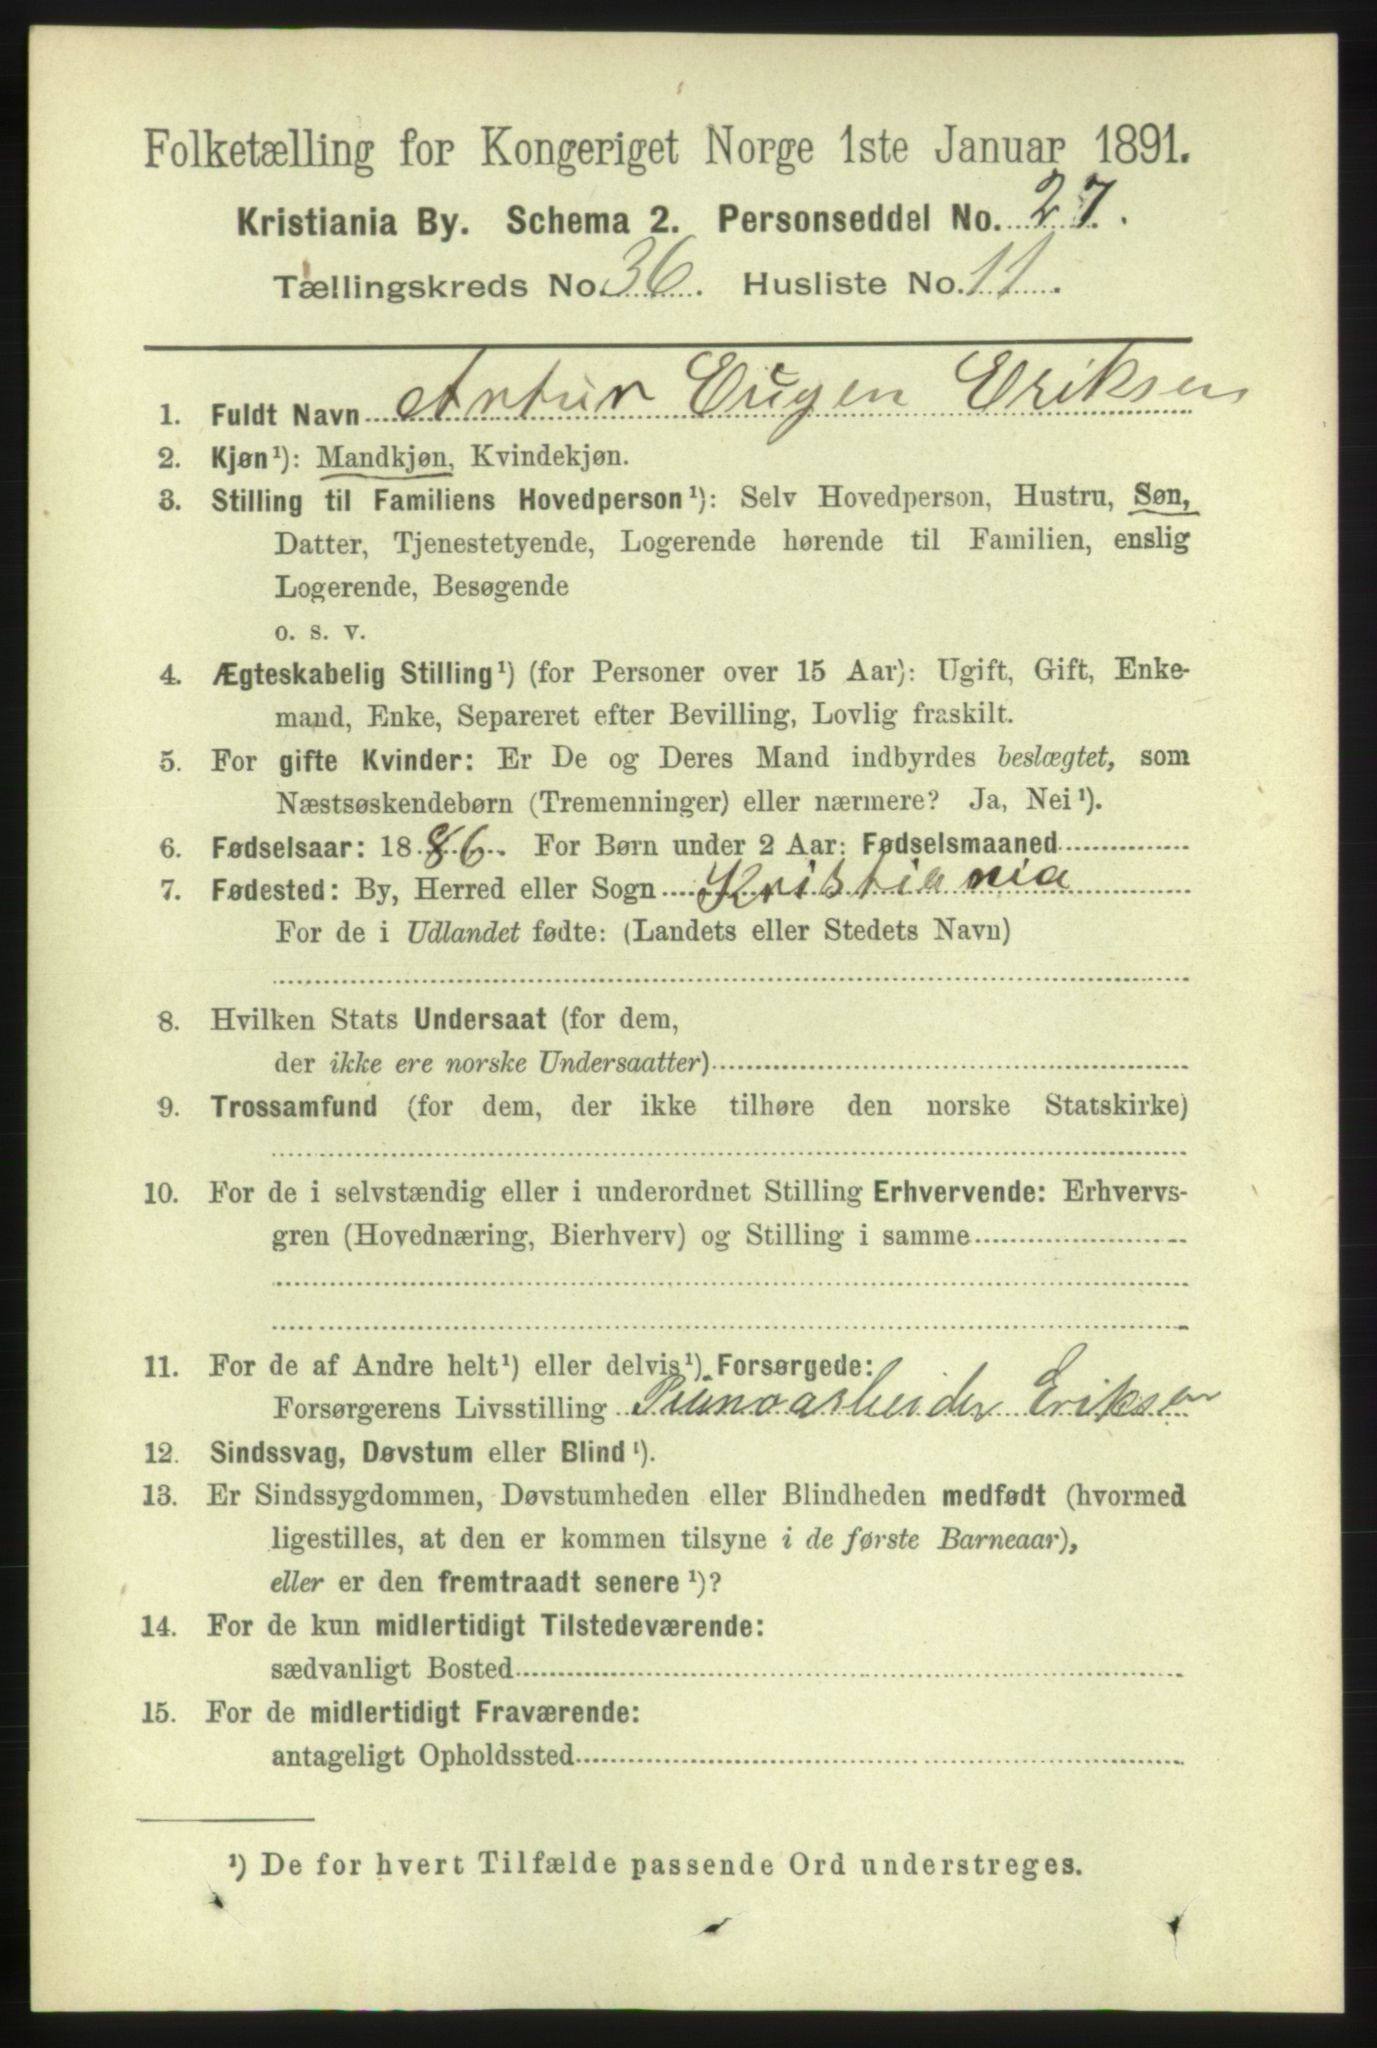 Folketælling for Kongeriget Norge 1ste Januar 1891.
Kristiania By. Schema 2. Personseddel No. 27.
Tællingskreds No. 36. Husliste No. 11.
1. Fuldt Navn Artur Eugen Eriksen
2. Kjøn¹): Mandkjøn, Kvindekjøn.
3. Stilling til Familiens Hovedperson¹): Selv Hovedperson, Hustru, Søn,
Datter, Tjenestetyende, Logerende hørende til Familien, enslig
Logerende, Besøgende
o. s. v.
4. Ægteskabelig Stilling¹) (for Personer over 15 Aar): Ugift, Gift, Enke-
mand, Enke, Separeret efter Bevilling, Lovlig fraskilt.
5. For gifte Kvinder: Er De og Deres Mand indbyrdes beslægtet, som
Næstsøskendebørn (Tremenninger) eller nærmere? Ja, Nei¹).
6. Fødselsaar: 1886. For Børn under 2 Aar: Fødselsmaaned
7. Fødested: By, Herred eller Sogn Kristiania
For de i Udlandet fødte: (Landets eller Stedets Navn)
8. Hvilken Stats Undersaat (for dem,
der ikke ere norske Undersaatter)
9. Trossamfund (for dem, der ikke tilhøre den norske Statskirke)
10. For de i selvstændig eller i underordnet Stilling Erhvervende: Erhvervs-
gren (Hovednæring, Bierhverv) og Stilling i samme
11. For de af Andre helt¹) eller delvis¹) Forsørgede:
Forsørgerens Livsstilling Pianoarbeider Eriksen
12. Sindssvag, Døvstum eller Blind¹).
13. Er Sindssygdommen, Døvstumheden eller Blindheden medfødt (hvormed
ligestilles, at den er kommen tilsyne i de første Barneaar),
eller er den fremtraadt senere¹)?
14. For de kun midlertidigt Tilstedeværende:
sædvanligt Bosted
15. For de midlertidigt Fraværende:
antageligt Opholdssted
¹) De for hvert Tilfælde passende Ord understreges.